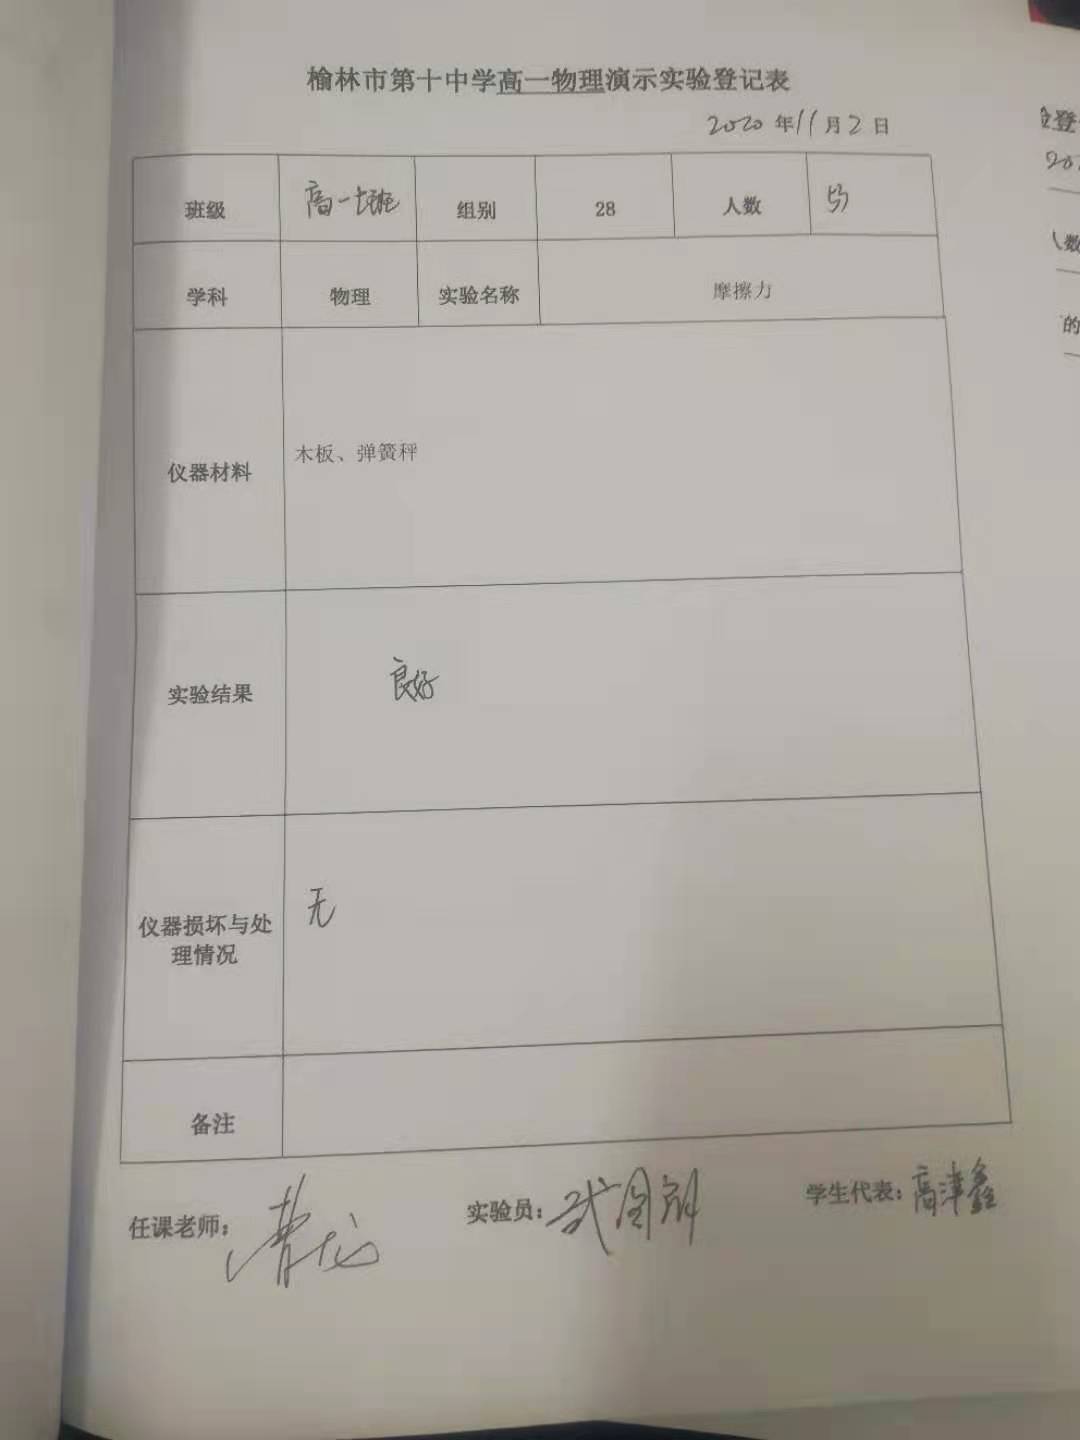 榆林市第十中学高一物理演示实验登记表
2020年11月2日
班级 高一七班 组别 28 人数 53
学科 物理 实验名称 摩擦力
仪器材料 木板、弹簧秤
实验结果 良好
仪器损坏与处
理情况
无
备注
任课老师：曹龙 实验员： 学生代表：高津鑫